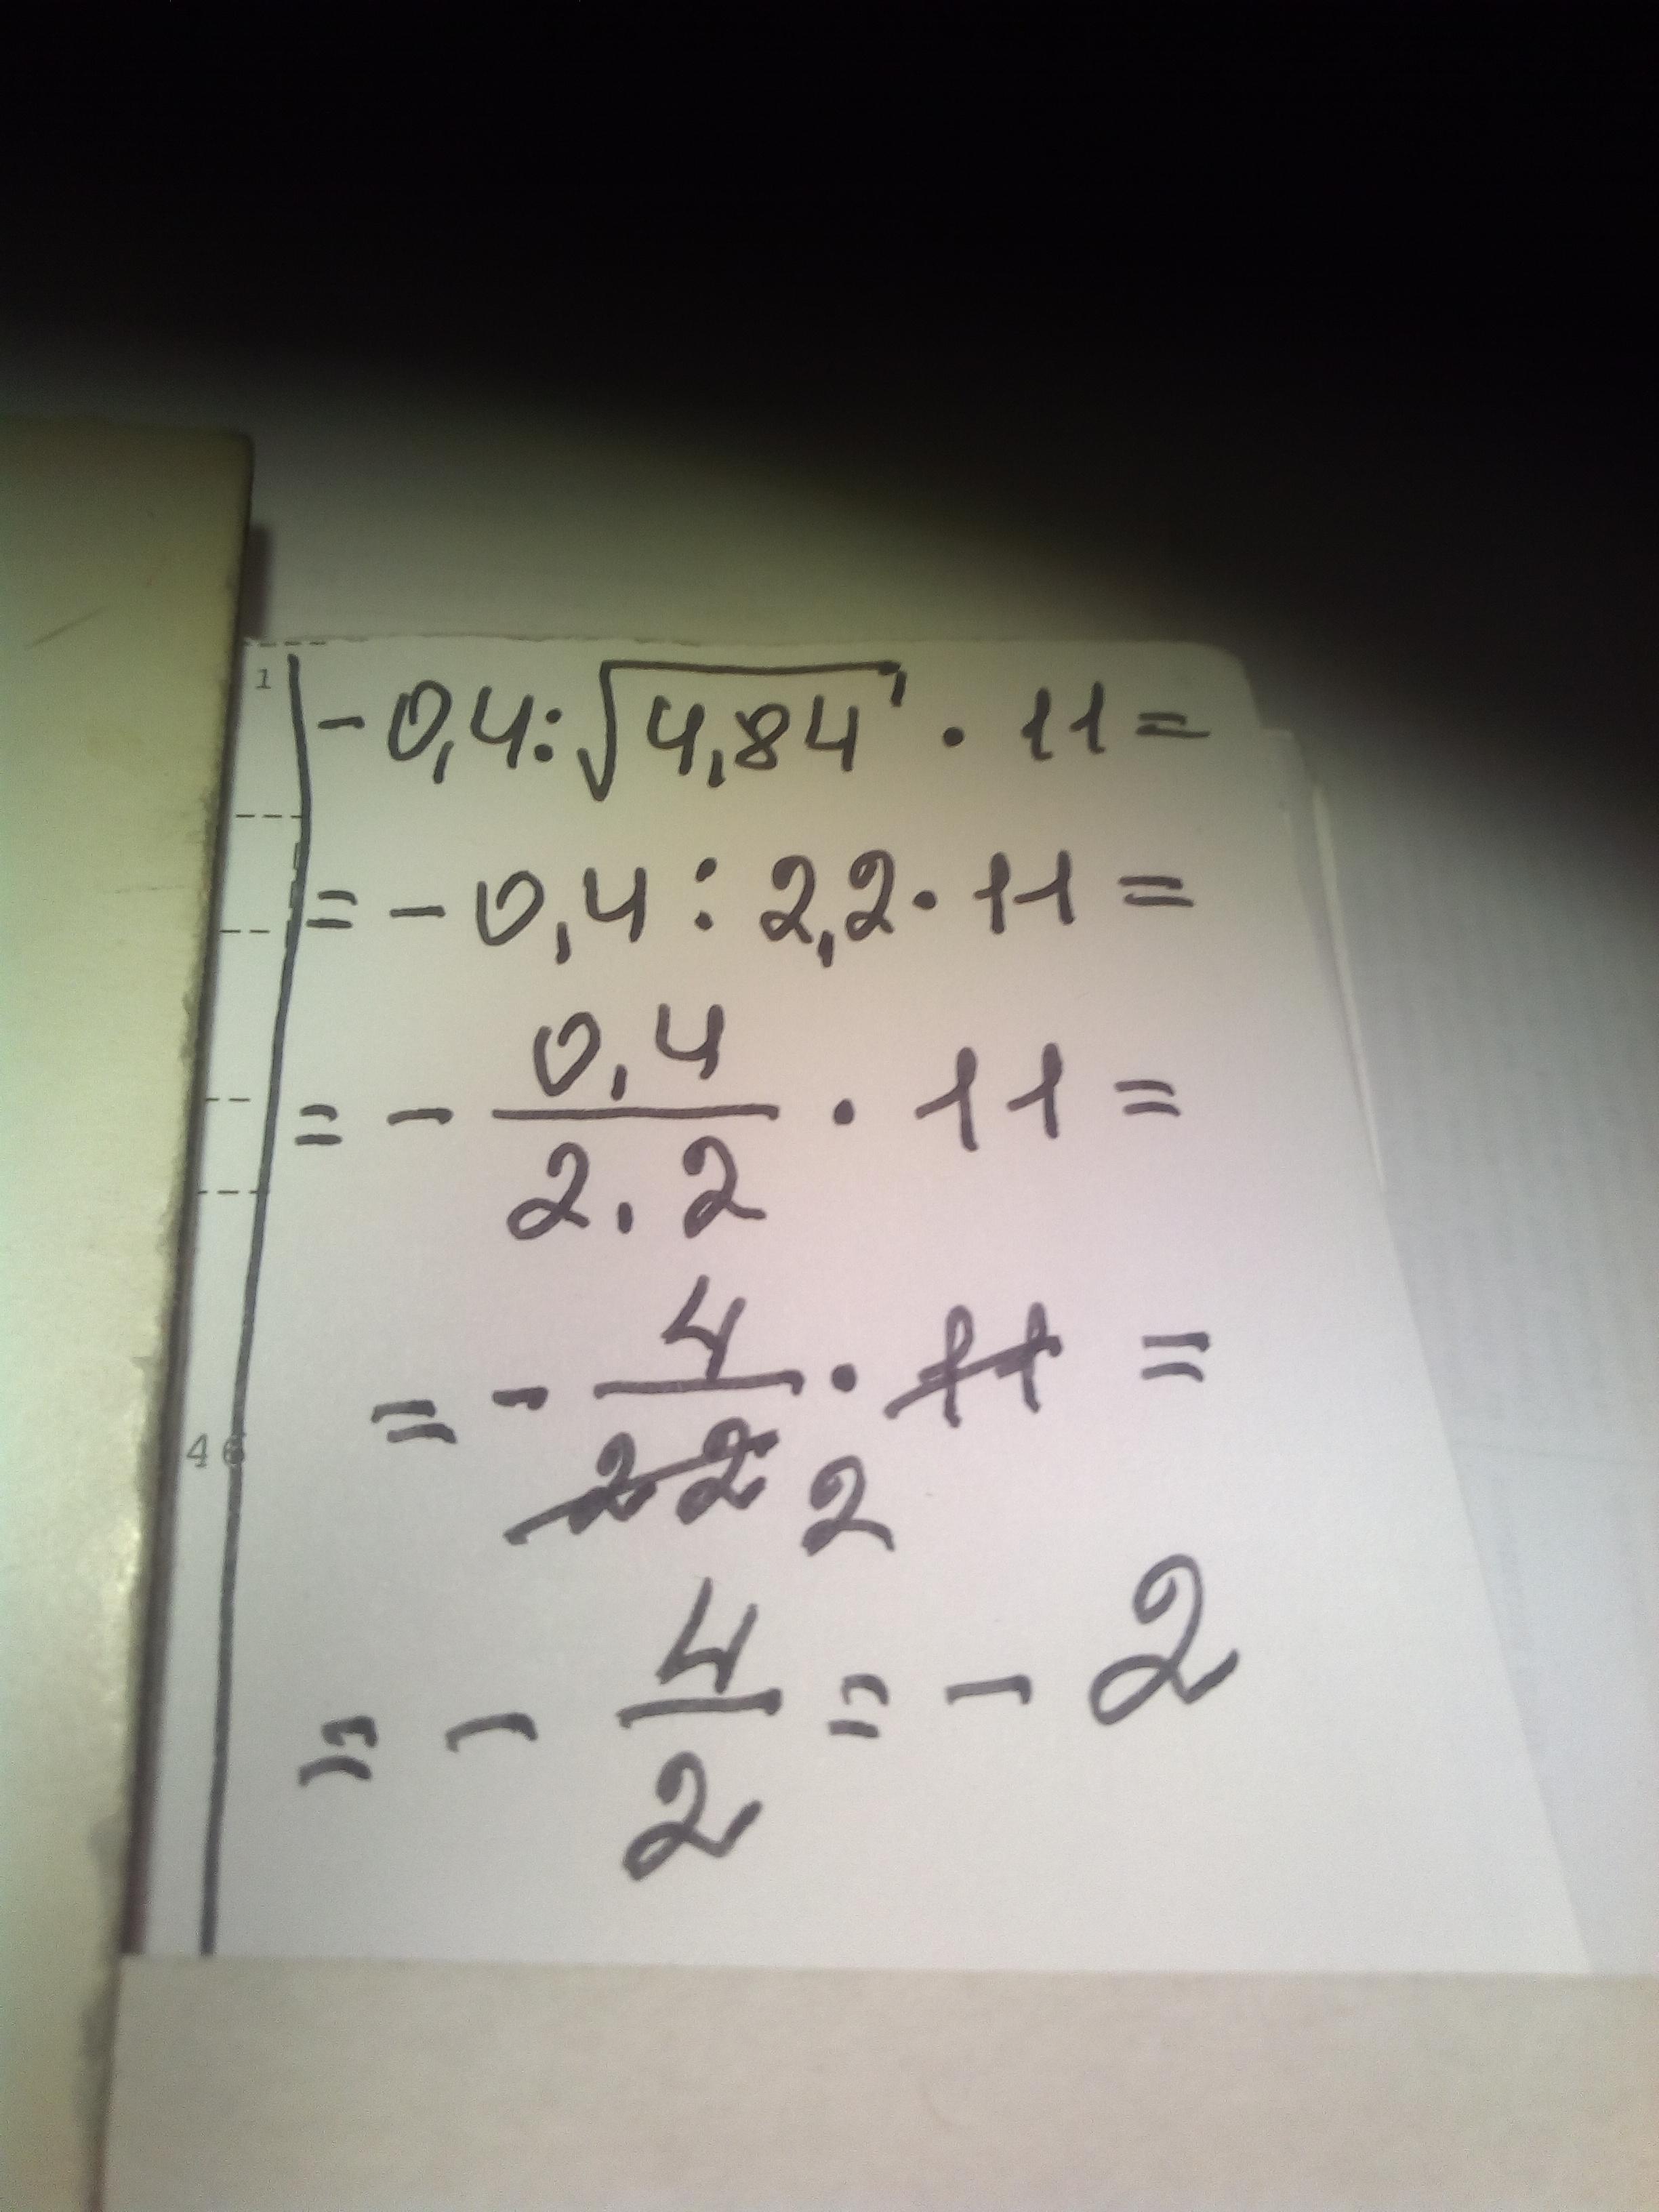 1
-0,4:√4,84 · 11 =
= - 0,4 : 2,2 · 11 =
= - 0,4/2,2 · 11 =
= - 4/22 · 11 =
2
46
= - 4/2 = - 2